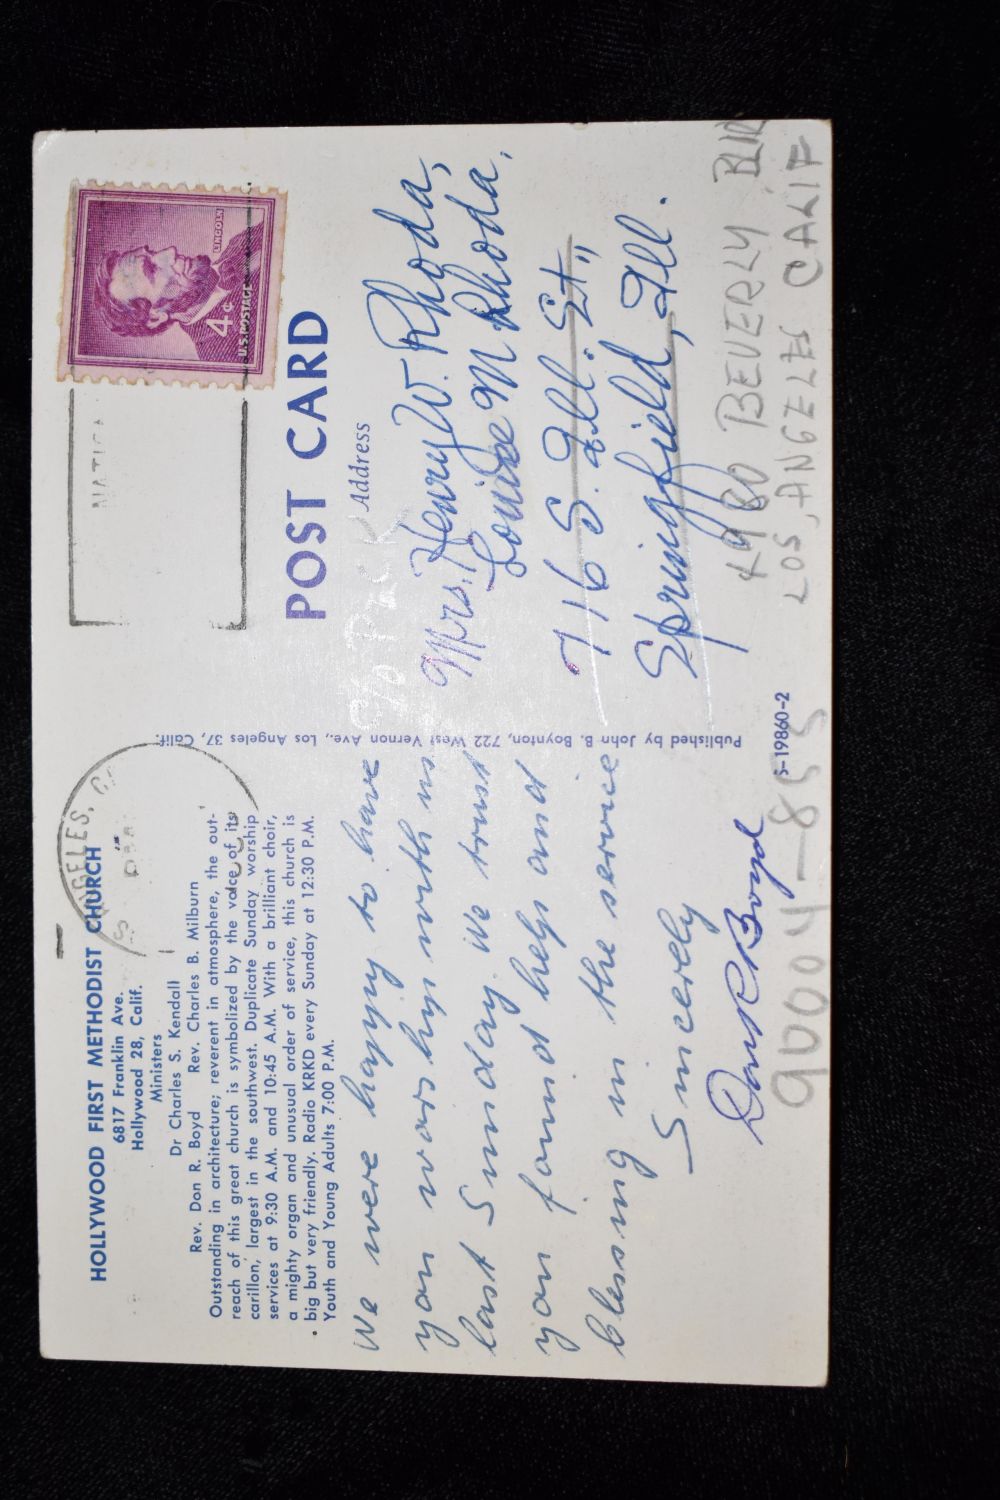 HOLLYWOOD FIRST METHODIST CHURCH
6817 Franklin Ave.
Hollywood 28, Calif.
Ministers
Dr Charles S. Kendall
Rev. Don R. Boyd Rev. Charles B. Milburn
Outstanding in architecture; reverent in atmosphere, the out-
reach of this great church is symbolized by the voice of its
carillon, largest in the southwest. Duplicate Sunday worship
services at 9:30 A.M. and 10:45 A.M. With a brilliant choir,
a mighty organ and unusual order of service, this church is
big but very friendly. Radio KRKD every Sunday at 12:30 P.M.
Youth and Young Adults 7:00 P.M.
We were happy to have
you worship with us
last Sunday. We trust
you found help and
blessing in the service
Sincerely
Don R Boyd
Published by John B. Boynton, 722 West Vernon Ave., Los Angeles 37, Calif.
S-19860-2
LINCOLN
4¢
U.S. POSTAGE
POST CARD
Address
Mrs. Henry W. Rhoda,
Louise M Rhoda,
716 S. Ill. St.,
Springfield, Ill.
4980 BEVERLY BLVD
LOS ANGELES CALIF
90004-855